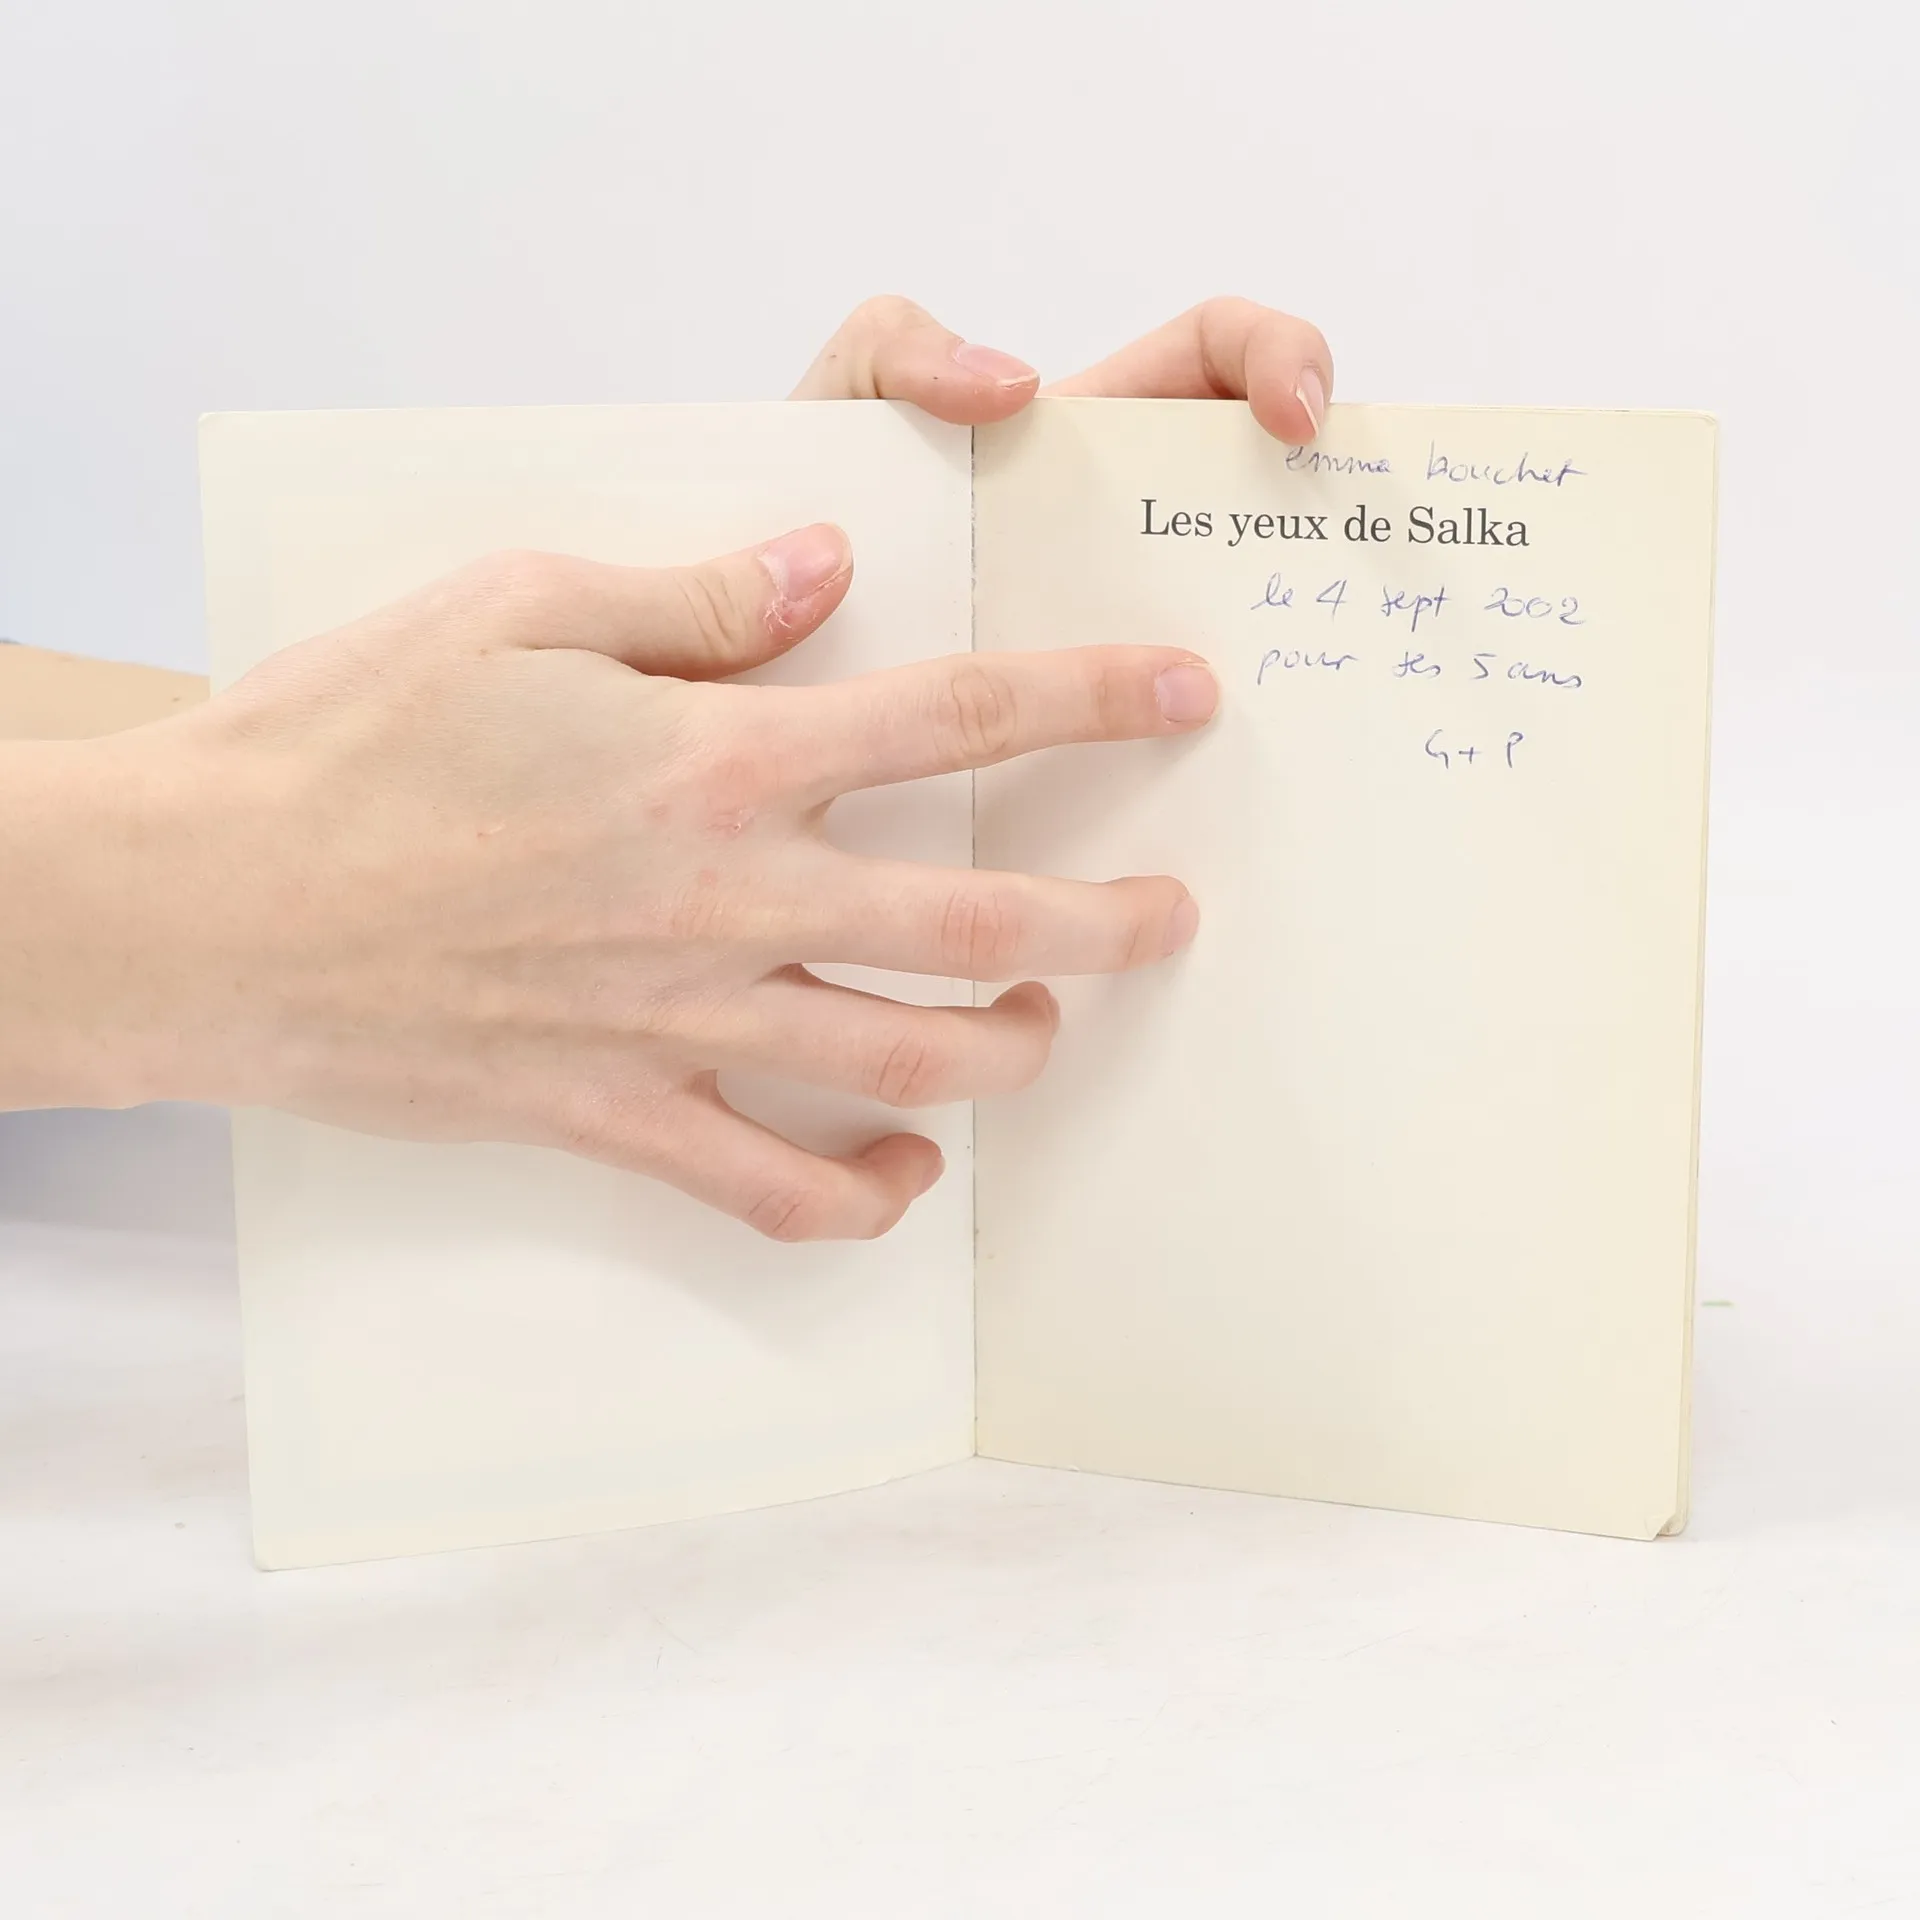 emma bouchet
Les yeux de Salka
le 4 sept 2002
pour tes 5 ans
G + P